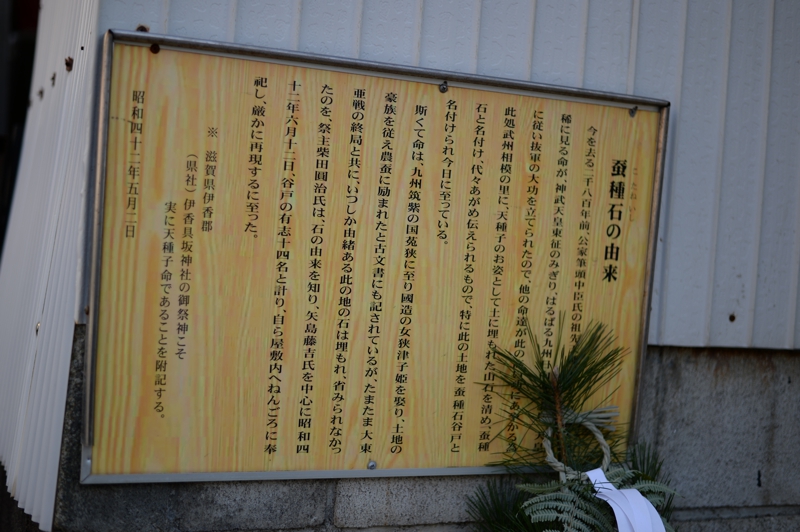 蚕種石の由来
今を去る二千八百年前、公家筆頭中臣氏の祖先
稀に見る命が、神武天皇東征のみぎり、はるばる九州
に従い抜軍の大功を立てられたので、他の命達が此の
此処武州相模の里に、天種子のお姿として土に埋もれた山石を清め、蚕種
石と名付け、代々あがめ伝えられるもので、特に此の土地を蚕種石谷戸と
名付けられ今日に至っている。
斯くて命は、九州筑紫の国莵狭に至り國造の女狭津子姫を娶り、土地の
豪族を従え農蚕に励まれたと古文書にも記されているが、たまたま大東
亜戦の終局と共に、いつしか由緒ある此の地の石は埋もれ、省みられなかっ
たのを、祭主柴田圓治氏は、石の由来を知り、矢島藤吉氏を中心に昭和四
十二年六月十二日、谷戸の有志十四名と計り、自ら屋敷内へねんごろに奉
祀し、厳かに再現するに至った。
※ 滋賀県伊香郡
(県社)伊香具坂神社の御祭神こそ
実に天種子命であることを附記する。
昭和四十二年五月二日